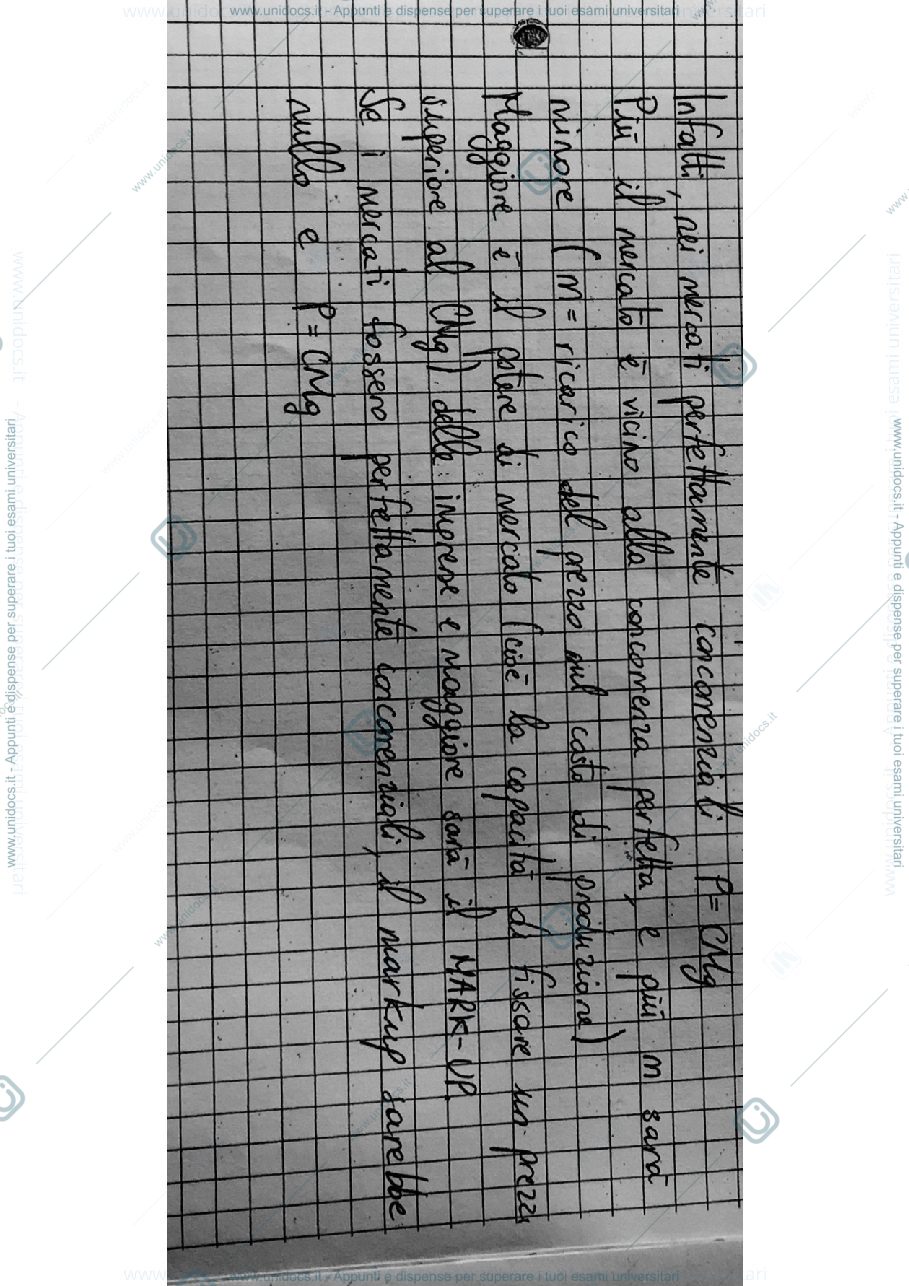 www.unidocs.it - Appunti e dispense per superare i tuoi esami universitari
Infatti, nei mercati perfettamente concorrenziali P = CMg
Più il mercato è vicino alla concorrenza perfetta, e più m sarà
minore (m = ricarico del prezzo sul costo di produzione)
Maggiore è il potere di mercato (cioè la capacità di fissare un prezzo
superiore al CMg) delle imprese e maggiore sarà il MARK-UP.
Se i mercati fossero perfettamente concorrenziali, il markup sarebbe
nullo e P = CMg
www.unidocs.it - Appunti e dispense per superare i tuoi esami universitari
www.unidocs.it - Appunti e dispense per superare i tuoi esami universitari
www.unidocs.it - Appunti e dispense per superare i tuoi esami universitari